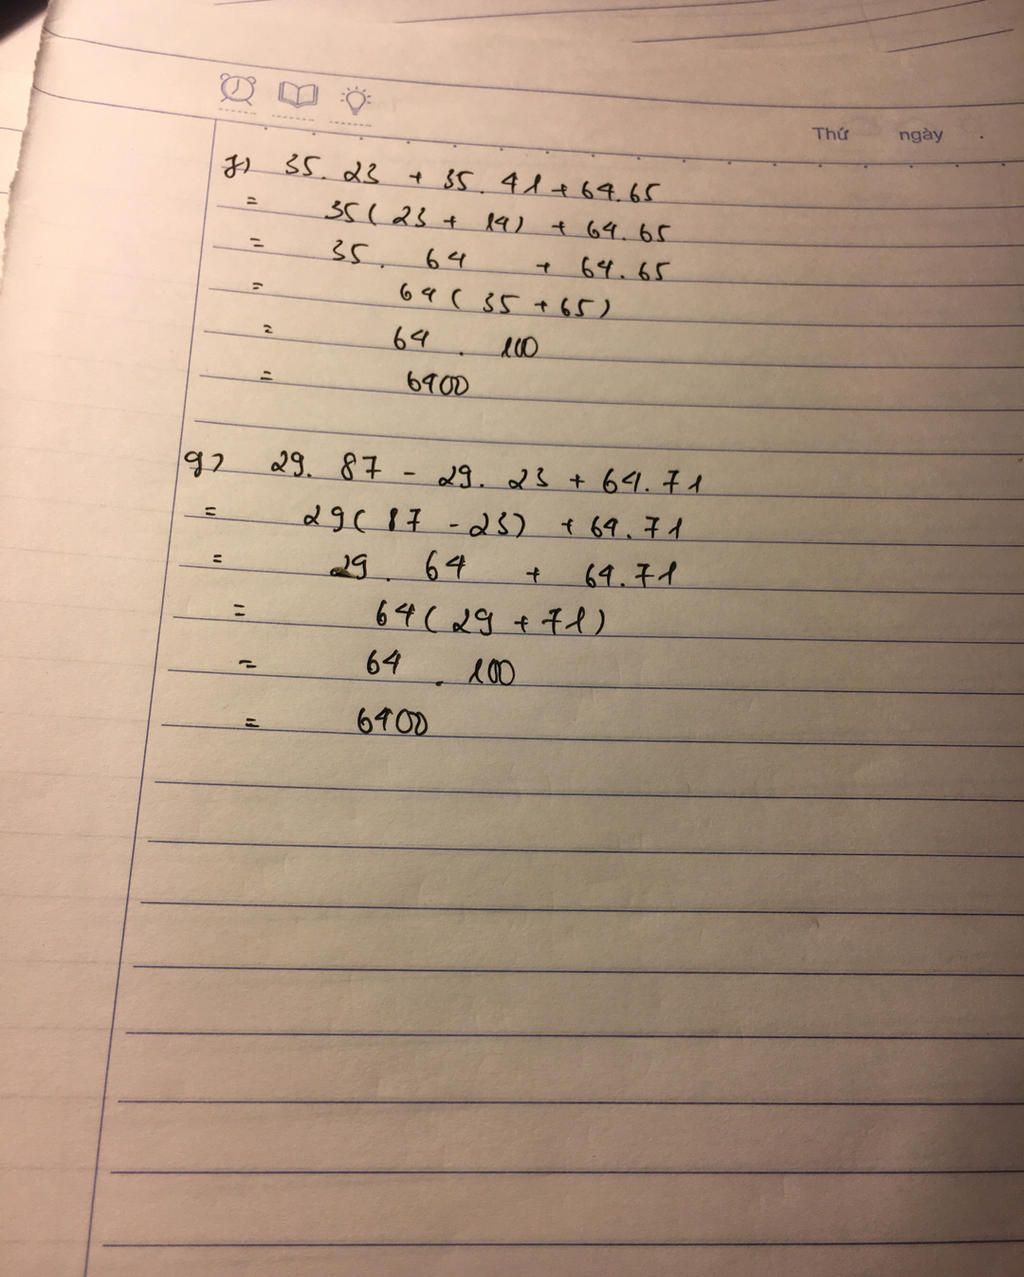 Thứ ngày
f) 35. 23 + 35. 41 + 64.65
= 35( 23 + 14) + 64.65
= 35. 64 + 64.65
= 64( 35 + 65)
= 64 . 100
= 6400
g) 29. 87 - 29. 23 + 64.71
= 29( 87 - 23) + 64.71
= 29. 64 + 64.71
= 64( 29 + 71)
= 64 . 100
= 6400